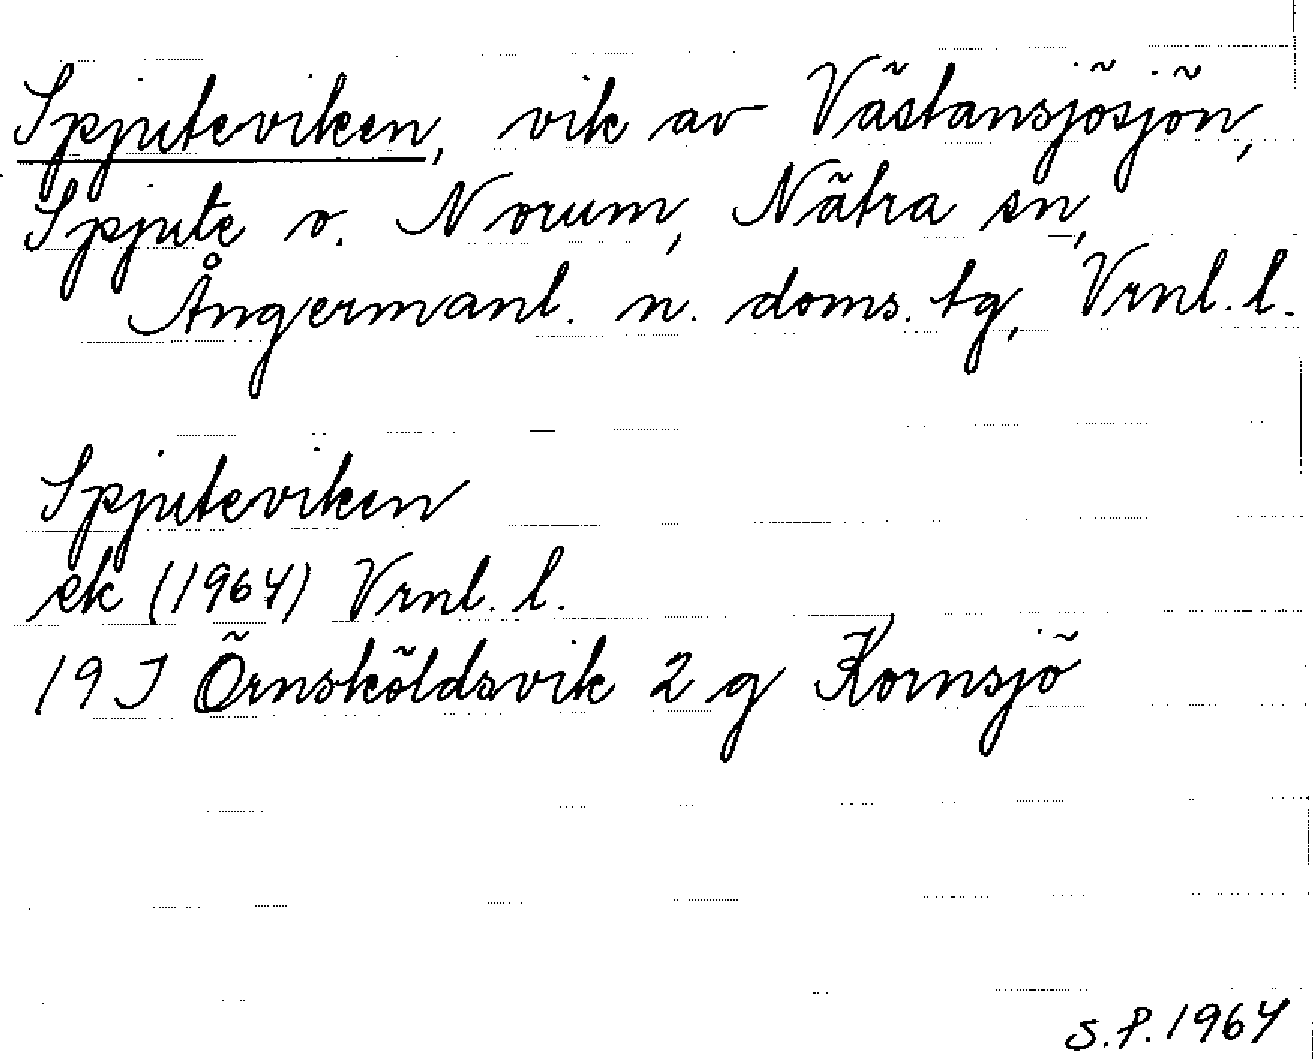 Spjuteviken, vik av Västansjösjön,
Spjute o. Norum, Nätra sn,
Ångermanl. n. doms. tg, Vrnl. l.
Spjuteviken
ek (1964) Vrnl. l.
19 J Örnsköldsvik 2 g Kornsjö
S.P. 1964